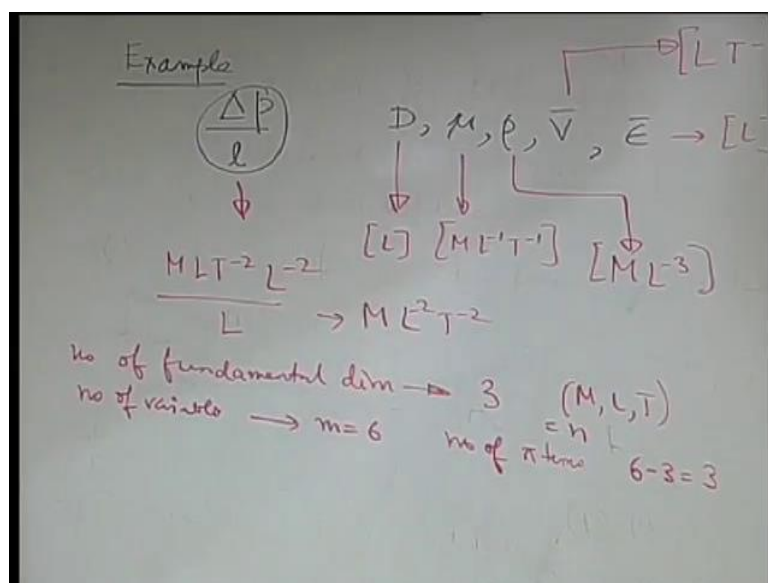 Example
[L T-
Δp
l
D, μ, ρ, V̄, ϵ̄ → [L]
[L] [M L⁻¹T⁻¹] [M L⁻³]
M L T⁻² L⁻²
L
→ M L⁻² T⁻²
no of fundamental dim → 3 (M, L, T)
= n
no of variable → m = 6
no of π terms 6-3 = 3